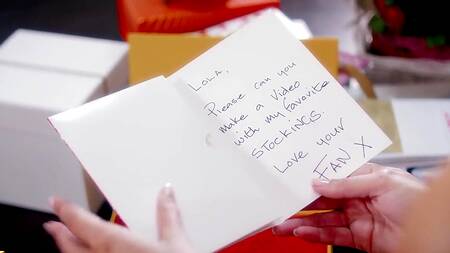 LOLA,
Please can you
make a video
with my favorite
STOCKINGS.
Love your
FAN X